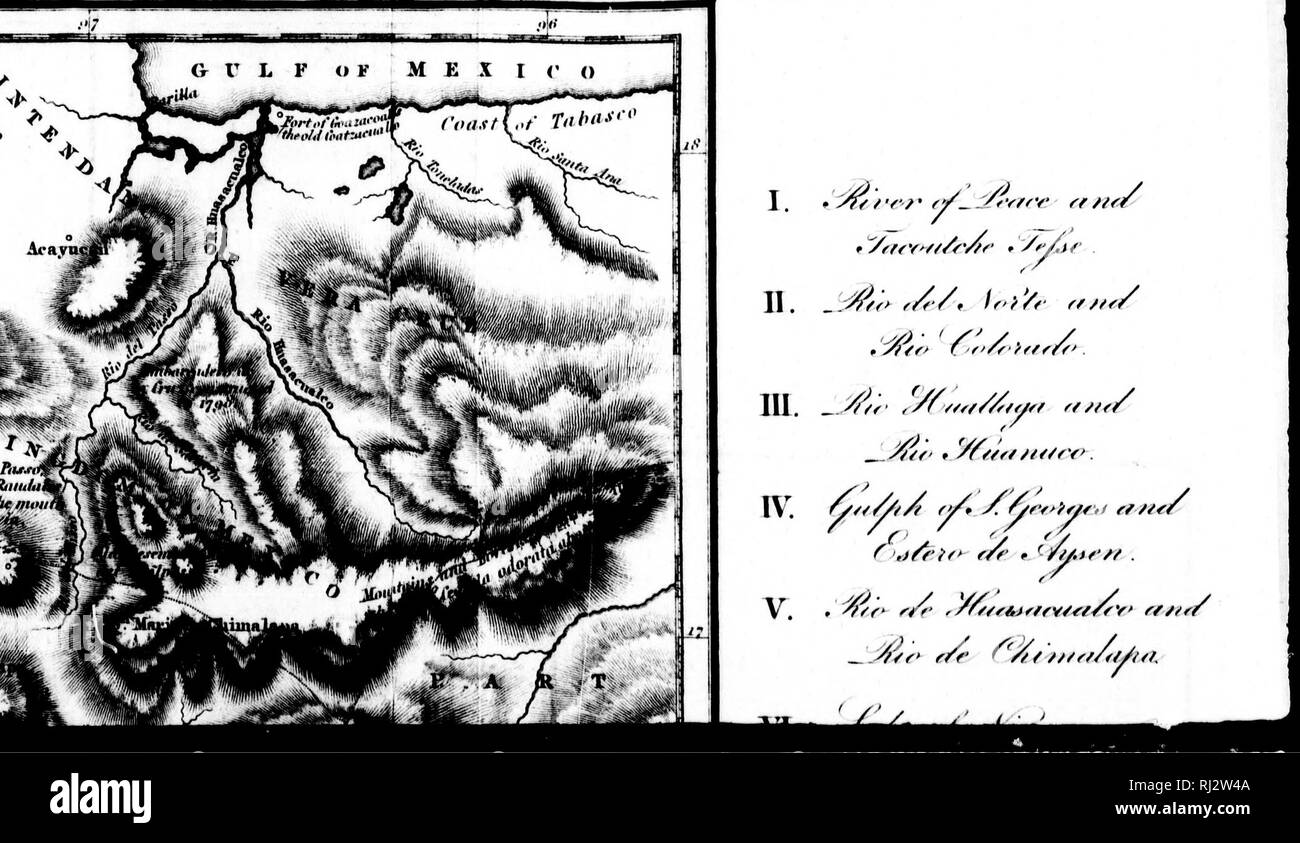 97 96
GULF OF MEXICO
Barilla
Fort of Goazacoalco
the old Coatzacualco
Coast of Tabasco
INTENDA
18
Rio Santa Ana
Rio Toneladas
Huasacualco
Acayucan
VERA CRUZ
Rio del Passo
Rio Huasacualco
Embarcadero
Cruz
1798
IN
Passo
the mouth
Mountains and
odorata
Maria Chimalapa
17
PART
I. River of Peace and
Tacoutche Tesse.
II. Rio del Norte and
Rio Colorado.
III. Rio Huallaga and
Rio Huanuco.
IV. Gulph of S. Georges and
Estero de Aysen.
V. Rio de Huasacualco and
Rio de Chimalapa.
VI.
alamy
a
alamy
Image ID: RJ2W4A
www.alamy.com